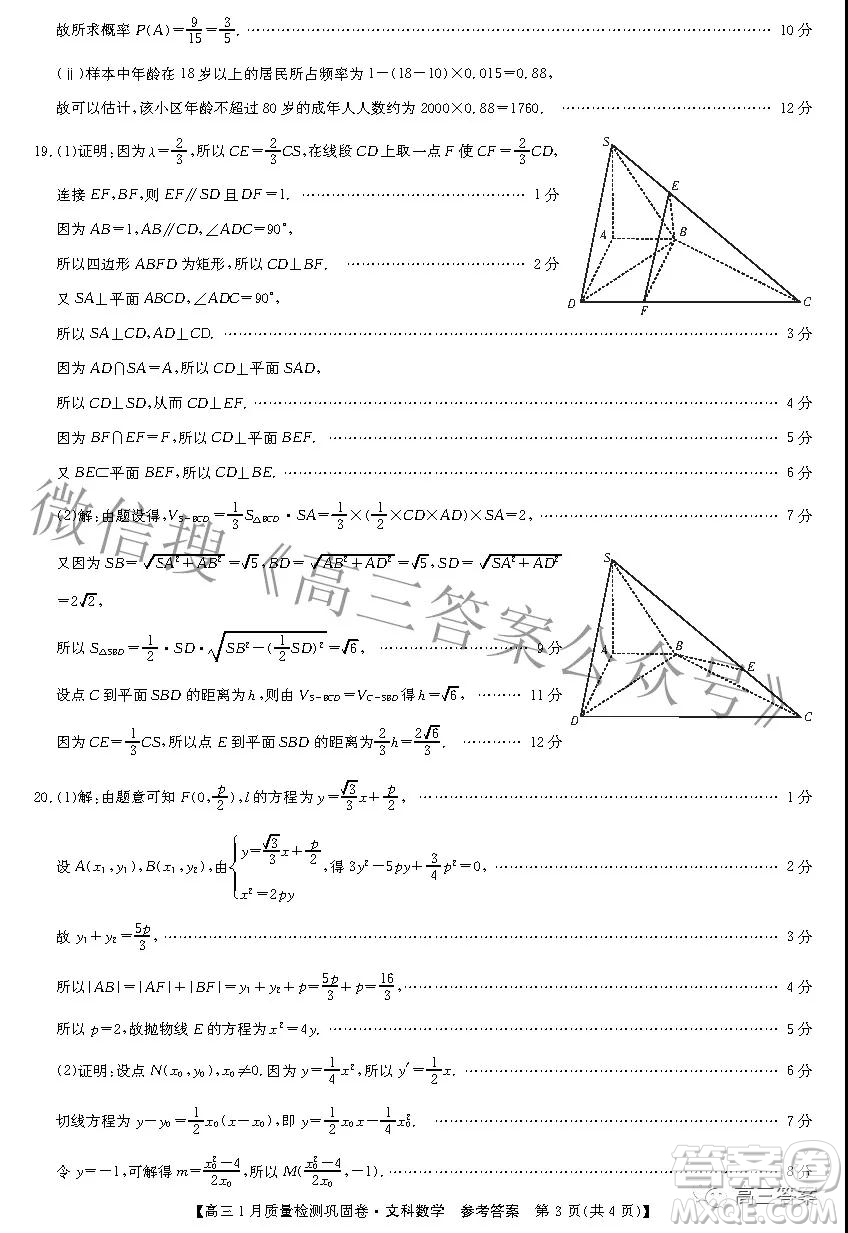 故所求概率 P(A)=9/15=3/5. …… 10 分
(ⅱ)样本中年龄在 18 岁以上的居民所占频率为 1-(18-10)×0.015=0.88,
故可以估计,该小区年龄不超过 80 岁的成年人人数约为 2000×0.88=1760. …… 12 分
19.(1)证明:因为 λ=2/3,所以 CE=2/3CS,在线段 CD 上取一点 F 使 CF=2/3CD,
连接 EF,BF,则 EF∥SD 且 DF=1. …… 1 分
因为 AB=1,AB∥CD,∠ADC=90°,
所以四边形 ABFD 为矩形,所以 CD⊥BF. …… 2 分
又 SA⊥平面 ABCD,∠ADC=90°,
S
E
A
B
D
F
C
所以 SA⊥CD,AD⊥CD. …… 3 分
因为 AD∩SA=A,所以 CD⊥平面 SAD,
所以 CD⊥SD,从而 CD⊥EF. …… 4 分
因为 BF∩EF=F,所以 CD⊥平面 BEF. …… 5 分
又 BE⊂平面 BEF,所以 CD⊥BE. …… 6 分
(2)解:由题设得,V_{S-BCD}=1/3S_{△BCD}·SA=1/3×(1/2×CD×AD)×SA=2, …… 7 分
又因为 SB=√(SA²+AB²)=√5,BD=√(AB²+AD²)=√5,SD=√(SA²+AD²)
=2√2,
所以 S_{△SBD}=1/2·SD·√(SB²-(1/2SD)²)=√6, …… 9 分
设点 C 到平面 SBD 的距离为 h,则由 V_{S-BCD}=V_{C-SBD}得 h=√6, …… 11 分
因为 CE=1/3CS,所以点 E 到平面 SBD 的距离为2/3h=2√6/3. …… 12 分
S
A
B
E
D
C
20.(1)解:由题意可知 F(0,p/2),l 的方程为 y=√3/3x+p/2, …… 1 分
设 A(x₁,y₁),B(x₁,y₂),由{y=√3/3x+p/2
x²=2py
,得 3y²-5py+3/4p²=0, …… 2 分
故 y₁+y₂=5p/3, …… 3 分
所以|AB|=|AF|+|BF|=y₁+y₂+p=5p/3+p=16/3, …… 4 分
所以 p=2,故抛物线 E 的方程为 x²=4y. …… 5 分
(2)证明:设点 N(x₀,y₀),x₀≠0.因为 y=1/4x²,所以 y′=1/2x. …… 6 分
切线方程为 y-y₀=1/2x₀(x-x₀),即 y=1/2x₀x-1/4x₀². …… 7 分
令 y=-1,可解得 m=(x₀²-4)/2x₀,所以 M((x₀²-4)/2x₀,-1). …… 8 分
【高三 1 月质量检测巩固卷·文科数学 参考答案 第 3 页(共 4 页)】
微信搜《高三答案公众号》
答案圈
高三答案
MXQE.COM